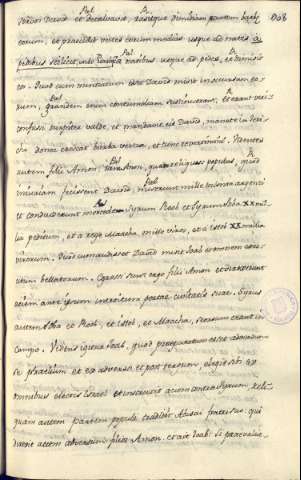 servos David et decalvavit, rasitque dimidiam partem barbæ
eorum, et præscidit vestes eorum medias usque ad nates a
usque ad pedes, et dimisit
eos. Quod cum nuntiatum esset David misit in occursum eo-
rum, grandem enim contumeliam sustinuerant, et erant viri
confusi turpiter valde, et mandavit eis David, manete in Jeri-
cho donec crescat barba vestra, et tunc revertimini. Videntes
autem filii Amon, quod
iniuriam fecissent David, miserunt mille talenta argenti
et conduxerunt mercede Syrum Roob et Syrum Soba XX mil-
lia peditum, et a rege Maacha mille viros, et a Istob XX millia
virorum. Quod cum audisset David misit Joab et omnem exerci-
tum bellatorum. Egressi sunt ergo filii Amon, et direxerunt
aciem ante ipsum introitum portæ civitatis suæ. Syrus
autem Soba et Roob, et Istob, et Maacha, seorsum erant in
campo. Videns igitur Joab, quod præparatum esset adversum
se prælium et ex adverso et post tergum, elegit sibi ex
omnibus electis Israel et instruxit aciem contra Syrum, reli-
quam autem partem populi tradidit Abisai fratri suo, qui
direxit aciem adversus filios Amon. et ait Joab: Si prævalue-